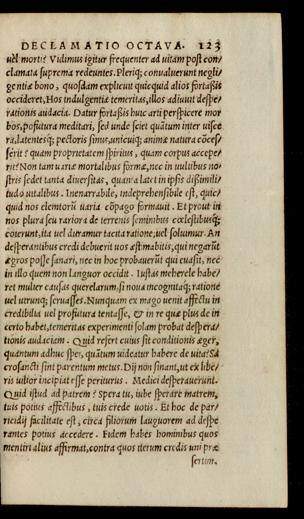 DECLAMATIO OCTAVA. 123
uel morti? Vidimus igitur frequenter ad uitam post con-
clamata suprema redeuntes. Pleriq; conualuerunt negli-
gentiæ bono, quosdam explicuit quicquid alios fortassis
occideret. Hos indulgentiæ temeritas, illos adiuuit despe-
rationis audacia. Datur fortassis huc arti perspicere mor
bos, posutura meditari, sed unde sciet quātum inter uisce
ra, latentesq; pectoris sinus, unicuiq; animæ natura cōces-
serit? quam proprietatem spiritus, quam corpus accepe-
rit? Non tam uariæ mortalibus formæ, nec in uultibus no-
stris sedet tanta diuersitas, quanta latet in ipsis dißimili-
tudo uitalibus. Inenarrabile, indeprehensibile est, quic-
quid nos elemtorū uaria cōpago formauit. Et prout in
nos plura seu rariora de terrenis seminibus cœlestibusq;
coierunt, ita uel duramur tacita ratione, uel soluimur. An
desperantibus credi debuerit uos æstimabitis, qui negarūt
ægros posse sanari, nec in hoc probauerūt qui euasit, nec
in illo quem non languor occidit. Iustas mehercle habe-
ret mulier causas querelarum, si noua incognitaq; ratione
uel utrunq; seruasses. Nunquam ex mago uenit affectu in
credibilia uel profutura tentasse, & in re quæ plus de in
certo habet, temeritas experimenti solam probat despera-
tionis audaciam. Quid refert cuius sit conditionis æger,
quantum adhuc spei, quātum uideatur habere de uita? Sa
crosancti sint parentum metus. Dij non sinant, ut ex libe-
ris uilior incipiat esse periturus. Medici desperauerunt.
Quid istud ad patrem? Spera tu, iube sperare matrem,
tuis potius affectibus, tuis crede uotis. Et hoc de par-
ricidij facilitate est, circa filiorum languorem ad despe
rantes potius accedere. Fidem habes hominibus quos
mentiri alius affirmat, contra quos iterum credis uni præ
serum.